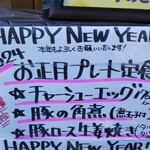 HAPPY NEW YEAR
本年もよろしくお願いいたします!
2024
お正月プレート定食
★チャーシューエッグ
★豚の角煮(煮玉子
★豚ロース生姜焼き
HAPPY NEW YEAR